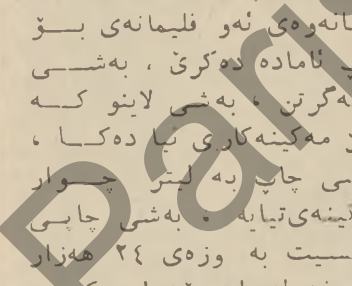 انەوەی ئەو فلیمانەی بــۆ
ئامادە دەکرێ ، بەشــی
ەگرتن ، بەشی لاینو کــە
مەکینەکاری تیا دەکــا ،
سی چاپ بە لیتر چــوار
کینەی‌تیایە ، بەشی چاپی
سیت بە وزەی ٢٤ هەزار